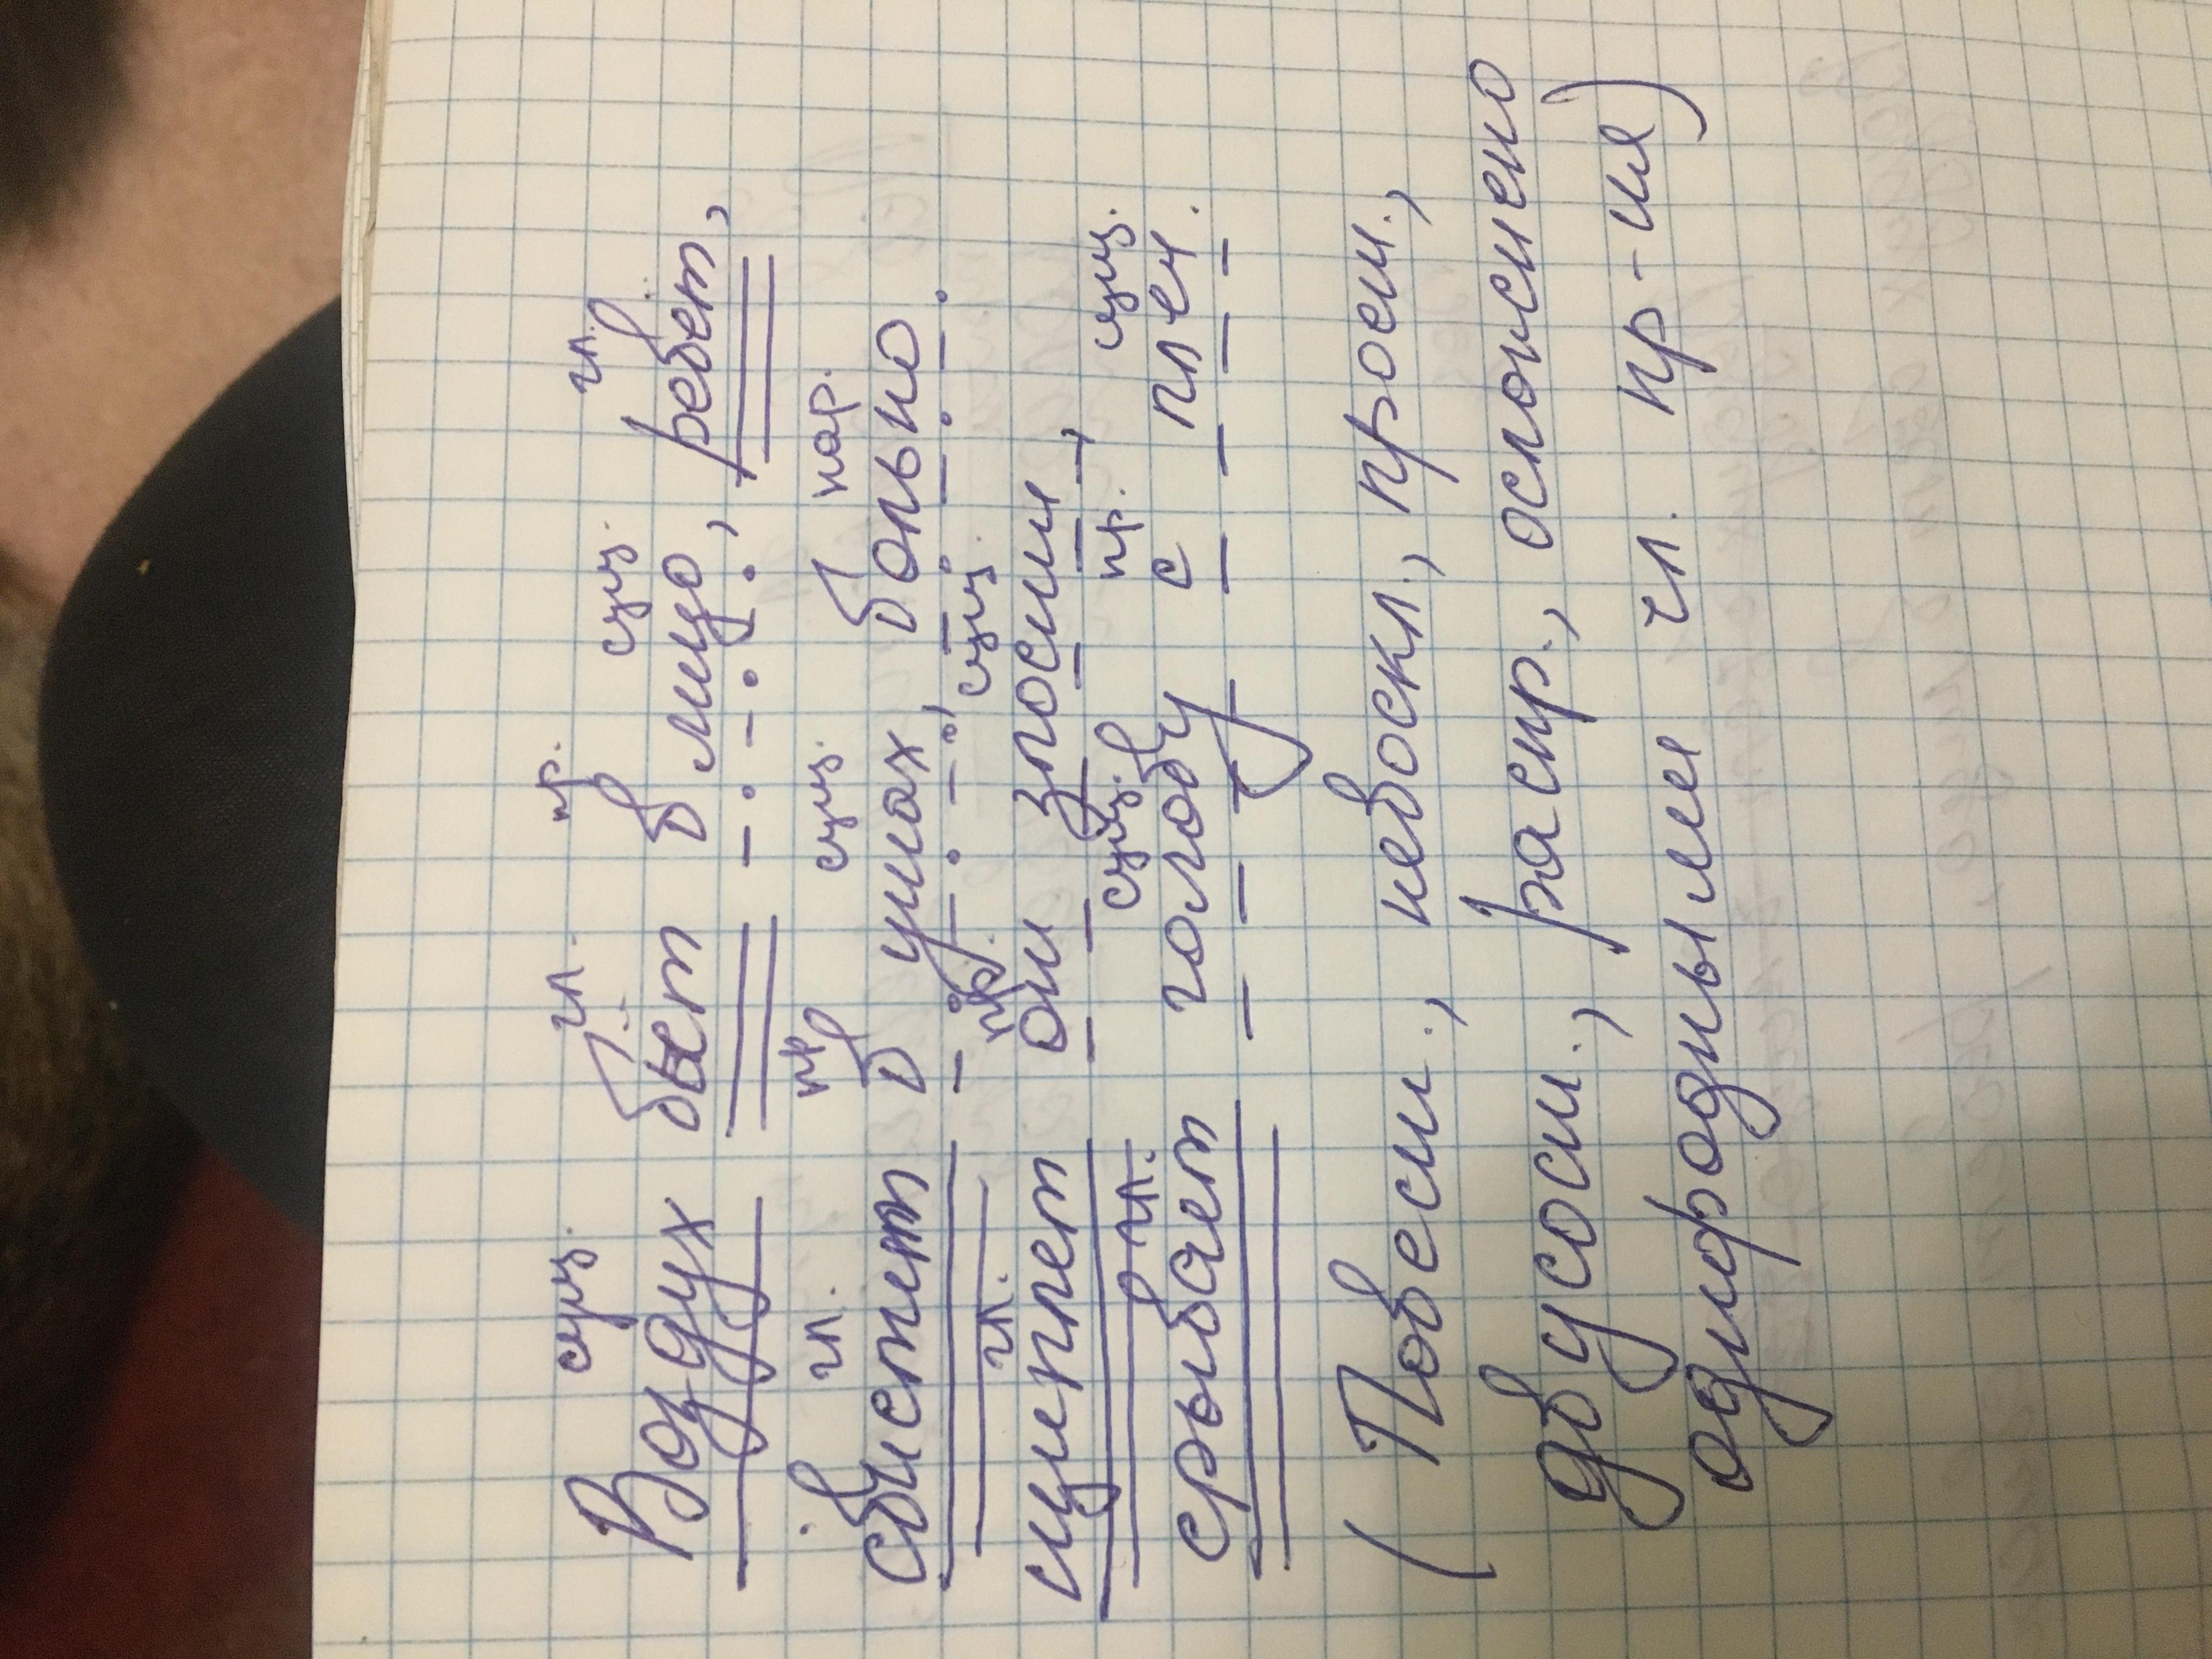 сущ. гл. пр. сущ. гл.
Воздух бьёт в лицо, ревёт,
гл. пр сущ. нар.
свистит в ушах, больно
гл. пр. сущ.
щиплет от злости,
гл. сущ. пр. сущ.
срывает голову с плеч.
(Повеств., невоскл., прост.,
двусост., распр., осложнено
однородными чл. пр-ия)